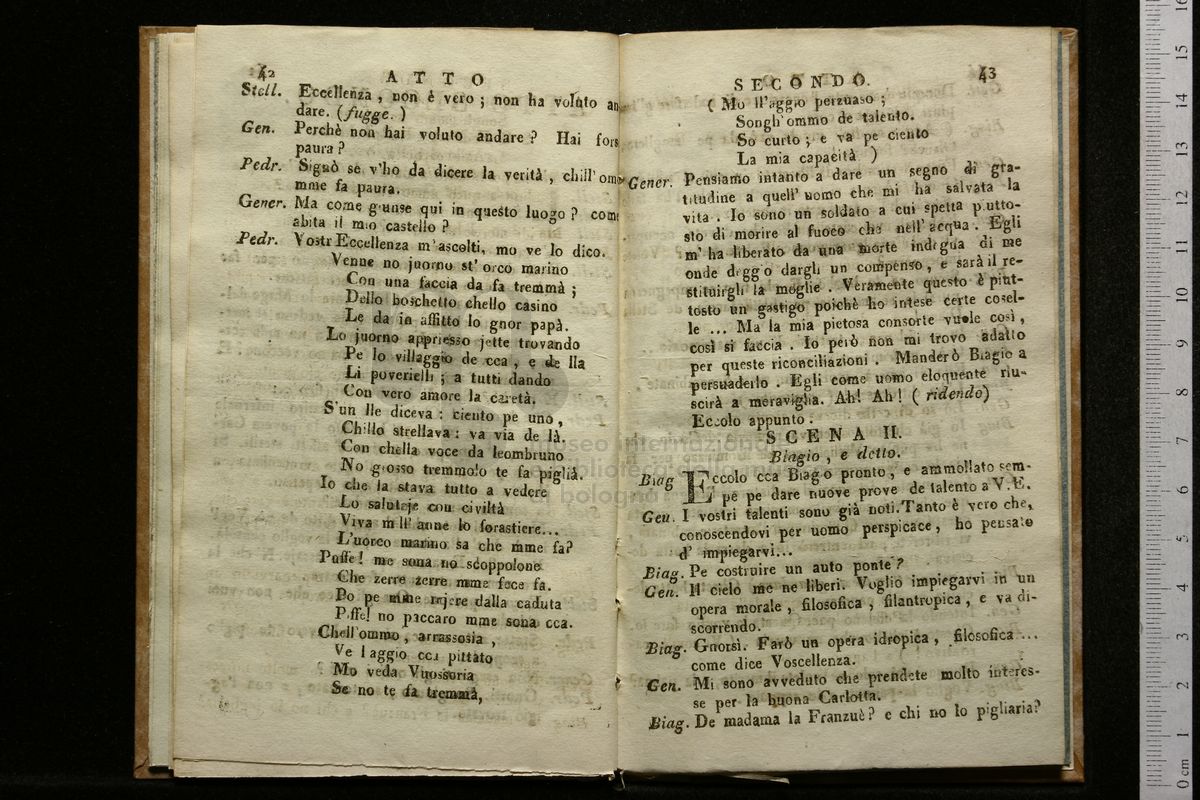 42
ATTO
Stell. Eccellenza, non è vero; non ha voluto an
dare. (fugge.)
Gen. Perchè non hai voluto andare? Hai fors
paura?
Pedr. Signò se v'ho da dicere la verità, chill'om
mme fa paura.
Gener. Ma come giunse qui in questo luogo? com
abita il mio castello?
Pedr. Vostr'Eccellenza m'ascolti, mo ve lo dico.
Venne no juorno st'orco marino
Con una faccia da fa tremmà;
Dello boschetto chello casino
Le da in affitto lo gnor papà.
Lo juorno appriesso jette trovando
Pe lo villaggio de cca, e de lla
Li poverielli; a tutti dando
Con vero amore la caretà.
S'un lle diceva: ciento pe uno,
Chillo strellava: va via de là.
Con chella voce da leombruno
No grosso tremmolo te fa piglià.
Io che la stava tutto a vedere
Lo salutaje con civiltà
Viva mill'anne lo forastiere...
L'uorco marino sa che mme fa?
Puffe! me sona no scoppolone
Che zerre zerre mme fece fa.
Po pe mme rejere dalla caduta
Piffe! no paccaro mme sona cca.
Chell'ommo, arrassosia,
Ve l'aggio cca pittato
Mo veda Vuossoria
Se no te fa tremmà,
SECONDO.
43
(Mo ll'aggio perzuaso;
Songh'ommo de talento.
So curto; e va pe ciento
La mia capacità)
Gener. Pensiamo intanto a dare un segno di gra-
titudine a quell'uomo che mi ha salvata la
vita. Io sono un soldato a cui spetta piutto-
sto di morire al fuoco che nell'acqua. Egli
m'ha liberato da una morte indegna di me
onde deggio dargli un compenso, e sarà il re-
stituirgli la moglie. Veramente questo è piut-
tosto un gastigo poichè ho intese certe cosel-
le ... Ma la mia pietosa consorte vuole così,
così si faccia. Io però non mi trovo adatto
per queste riconciliazioni. Manderò Biagio a
persuaderlo. Egli come uomo eloquente riu-
scirà a meraviglia. Ah! Ah! (ridendo)
Eccolo appunto.
SCENA II.
Biagio, e detto.
Biag Eccolo cca Biagio pronto, e ammollato sem-
pe pe dare nuove prove de talento a V.E.
Gen. I vostri talenti sono già noti. Tanto è vero che,
conoscendovi per uomo perspicace, ho pensato
d'impiegarvi...
Biag. Pe costruire un auto ponte?
Gen. Il cielo me ne liberi. Voglio impiegarvi in un
opera morale, filosofica, filantropica, e va di-
scorrendo.
Biag. Gnorsì. Farò un opera idropica, filosofica ...
come dice Voscellenza.
Gen. Mi sono avveduto che prendete molto interes-
se per la buona Carlotta.
Biag. De madama la Franzuè? e chi no lo pigliaria?
museo internazionale
e biblioteca della musica
di bologna
0 cm 1 2 3 4 5 6 7 8 9 10 11 12 13 14 15 16